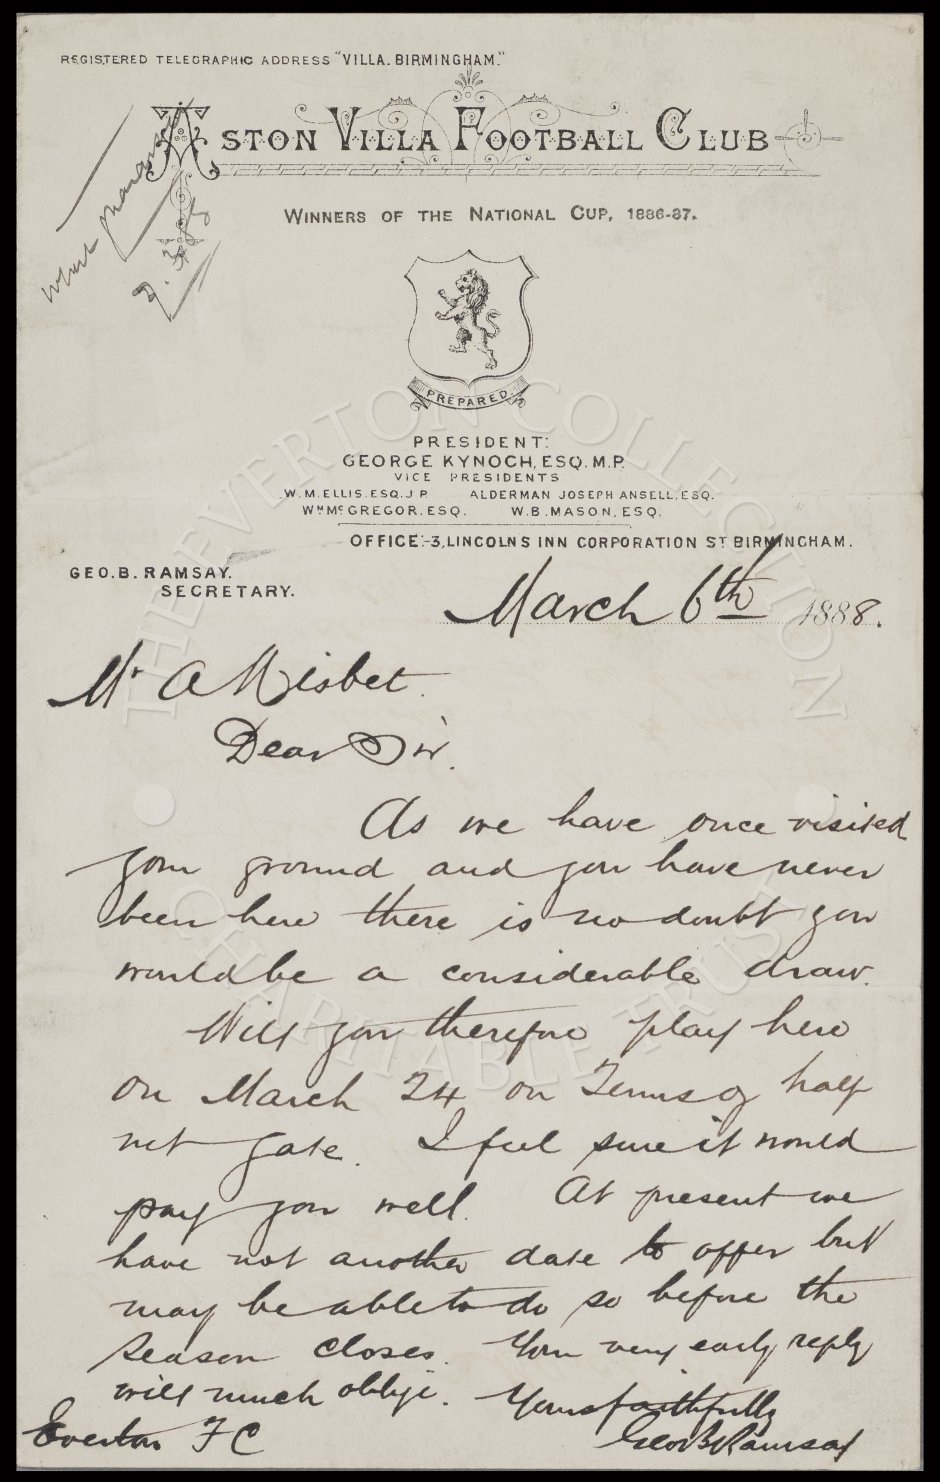 REGISTERED TELEGRAPHIC ADDRESS "VILLA. BIRMINGHAM."
ASTON VILLA FOOTBALL CLUB
WINNERS OF THE NATIONAL CUP, 1886-87.
PREPARED
PRESIDENT:
GEORGE KYNOCH, ESQ. M.P.
VICE PRESIDENTS
W. M. ELLIS. ESQ. J. P. ALDERMAN JOSEPH ANSELL, ESQ.
Wm McGREGOR. ESQ. W. B. MASON, ESQ.
OFFICE:-3, LINCOLNS INN CORPORATION ST BIRMINGHAM.
GEO. B. RAMSAY.
SECRETARY.
March 6th 1888.
Mr A Nisbet.
Dear Sir.
As we have once visited
your ground and you have never
been here there is no doubt you
would be a considerable draw.
Will you therefore play here
on March 24 on Terms of half
net gate. I feel sure it would
pay you well. At present we
have not another date to offer but
may be able to do so before the
season closes. Your very early reply
will much oblige. Yours faithfully
Everton F C Geo B Ramsay
THE EVERTON COLLECTION
CHARITABLE TRUST